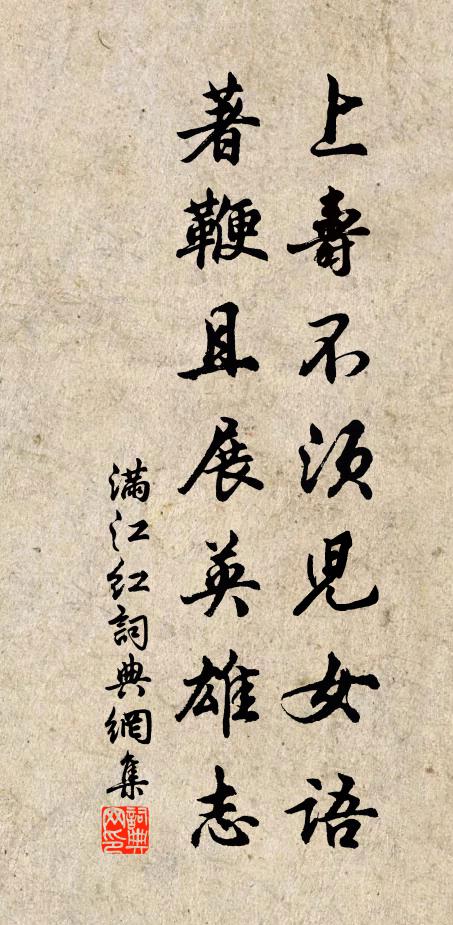 上壽不須兒女語
著鞭且展英雄志
滿江紅詞典網集
詞典
网印